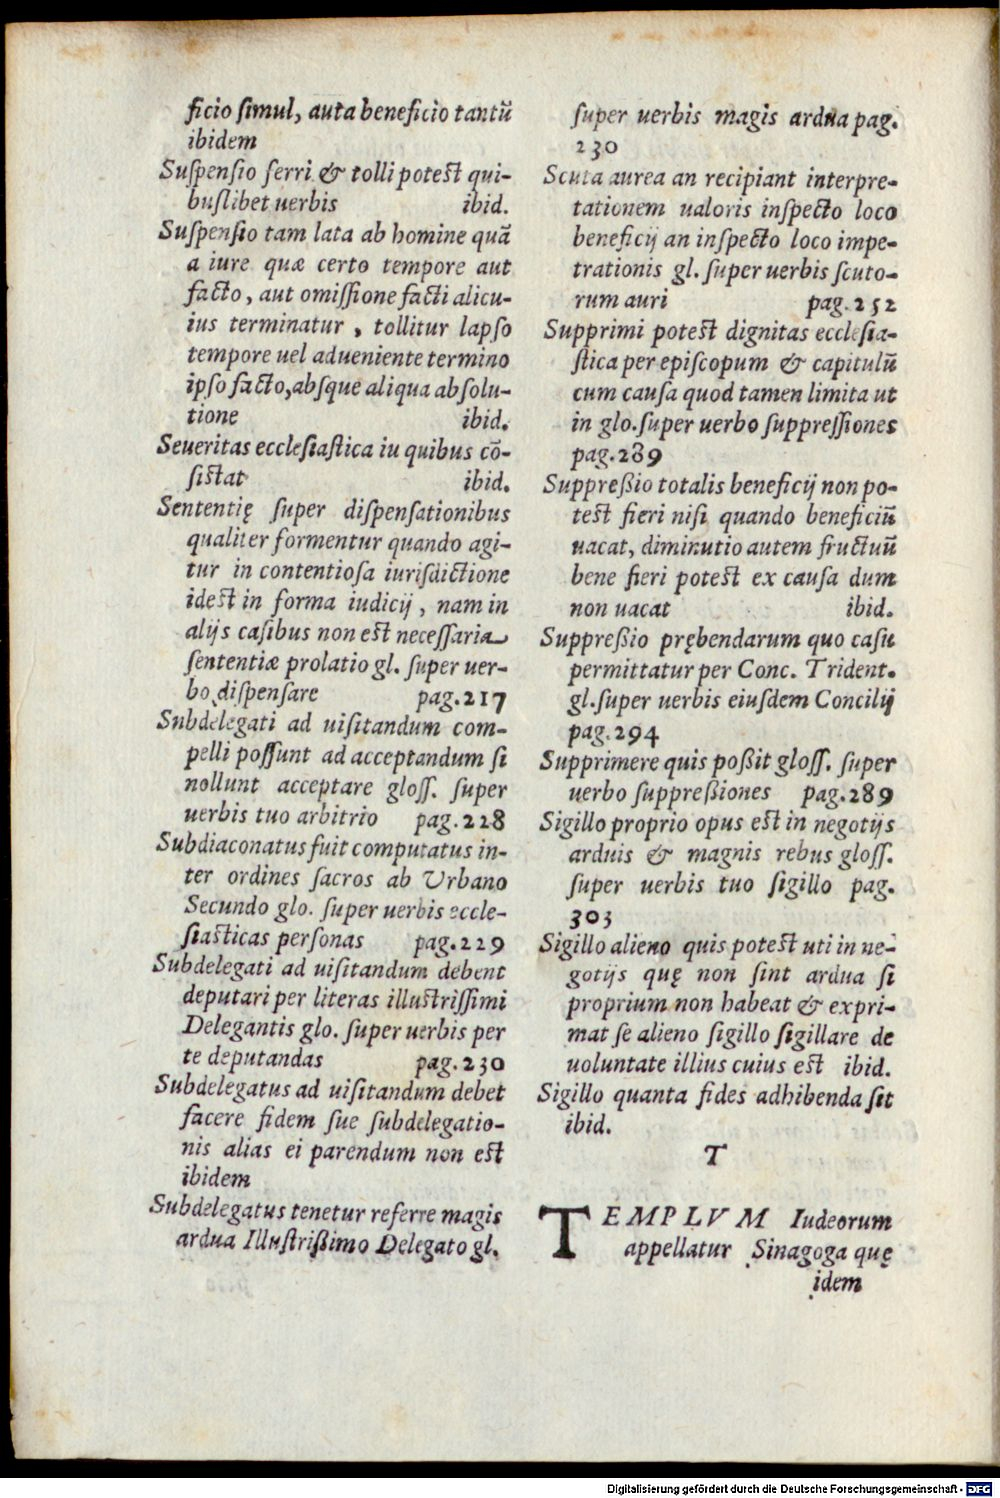 ficio ſimul, auta beneficio tantũ
ibidem
Suſpenſio ferri & tolli poteſt qui-
buſlibet uerbis ibid.
Suſpenſio tam lata ab homine quã
a iure quæ certo tempore aut
facto, aut omiſſione facti alicu-
ius terminatur, tollitur lapſo
tempore uel adueniente termino
ipſo facto, abſque aliqua abſolu-
tione ibid.
Seueritas eccleſiaſtica iu quibus cõ-
ſiſtat ibid.
Sententię ſuper diſpenſationibus
qualiter formentur quando agi-
tur in contentioſa iuriſdictione
ideſt in forma iudicij, nam in
alijs caſibus non eſt neceſſaria
ſententiæ prolatio gl. ſuper uer-
bo diſpenſare pag. 217
Subdelegati ad uiſitandum com-
pelli poſſunt ad acceptandum ſi
nollunt acceptare gloſſ. ſuper
uerbis tuo arbitrio pag. 228
Subdiaconatus fuit computatus in-
ter ordines ſacros ab Vrbano
Secundo glo. ſuper uerbis eccle-
ſiaſticas perſonas pag. 229
Subdelegati ad uiſitandum debent
deputari per literas illuſtriſſimi
Delegantis glo. ſuper uerbis per
te deputandas pag. 230
Subdelegatus ad uiſitandum debet
facere fidem ſue ſubdelegatio-
nis alias ei parendum non eſt
ibidem
Subdelegatus tenetur referre magis
ardua Illuſtrißimo Delegato gl.
ſuper uerbis magis ardua pag.
230
Scuta aurea an recipiant interpre-
tationem ualoris inſpecto loco
beneficij an inſpecto loco impe-
trationis gl. ſuper uerbis ſcuto-
rum auri pag. 252
Supprimi poteſt dignitas eccleſia-
ſtica per epiſcopum & capitulũ
cum cauſa quod tamen limita ut
in glo. ſuper uerbo ſuppreſſiones
pag. 289
Suppreßio totalis beneficij non po-
teſt fieri niſi quando beneficiũ
uacat, diminutio autem fructuũ
bene fieri poteſt ex cauſa dum
non uacat ibid.
Suppreßio prębendarum quo caſu
permittatur per Conc. Trident.
gl. ſuper uerbis eiuſdem Concilij
pag. 294
Supprimere quis poßit gloſſ. ſuper
uerbo ſuppreßiones pag. 289
Sigillo proprio opus eſt in negotijs
arduis & magnis rebus gloſſ.
ſuper uerbis tuo ſigillo pag.
303
Sigillo alieno quis poteſt uti in ne-
gotijs quę non ſint ardua ſi
proprium non habeat & expri-
mat ſe alieno ſigillo ſigillare de
uoluntate illius cuius eſt ibid.
Sigillo quanta fides adhibenda ſit
ibid.
T
TEMPLVM Iudeorum
appellatur Sinagoga quę
idem
Digitalisierung gefördert durch die Deutsche Forschungsgemeinschaft - DFG